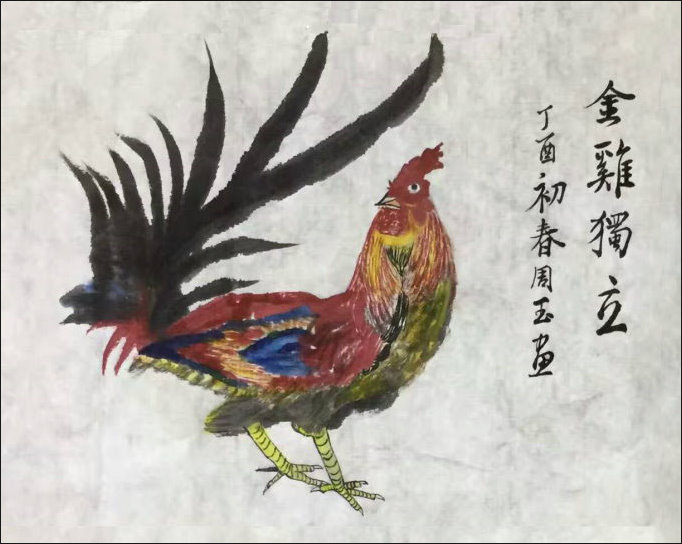 金雞獨立
丁酉初春周玉画